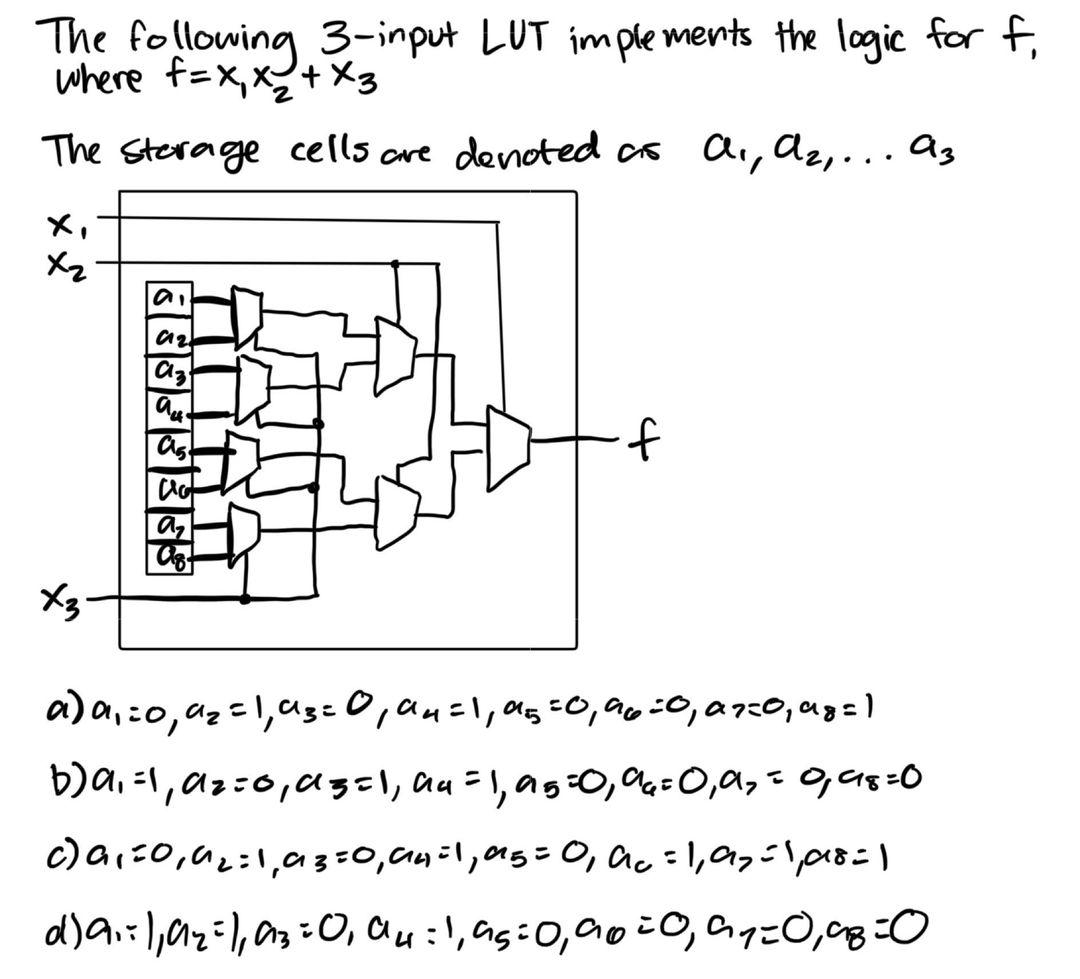 The following 3-input LUT implements the logic for f,
where f=x₁x₂+x₃
The storage cells are denoted as a₁, a₂,... a₃
x₁
x₂
a₁
a₂
a₃
a₄
a₅
a₆
a₇
a₈
f
x₃
a) a₁=0, a₂=1, a₃=0, a₄=1, a₅=0, a₆=0, a₇=0, a₈=1
b) a₁=1, a₂=0, a₃=1, a₄=1, a₅=0, a₆=0, a₇=0, a₈=0
c) a₁=0, a₂=1, a₃=0, a₄=1, a₅=0, a₆=1, a₇=1, a₈=1
d) a₁=1, a₂=1, a₃=0, a₄=1, a₅=0, a₆=0, a₇=0, a₈=0